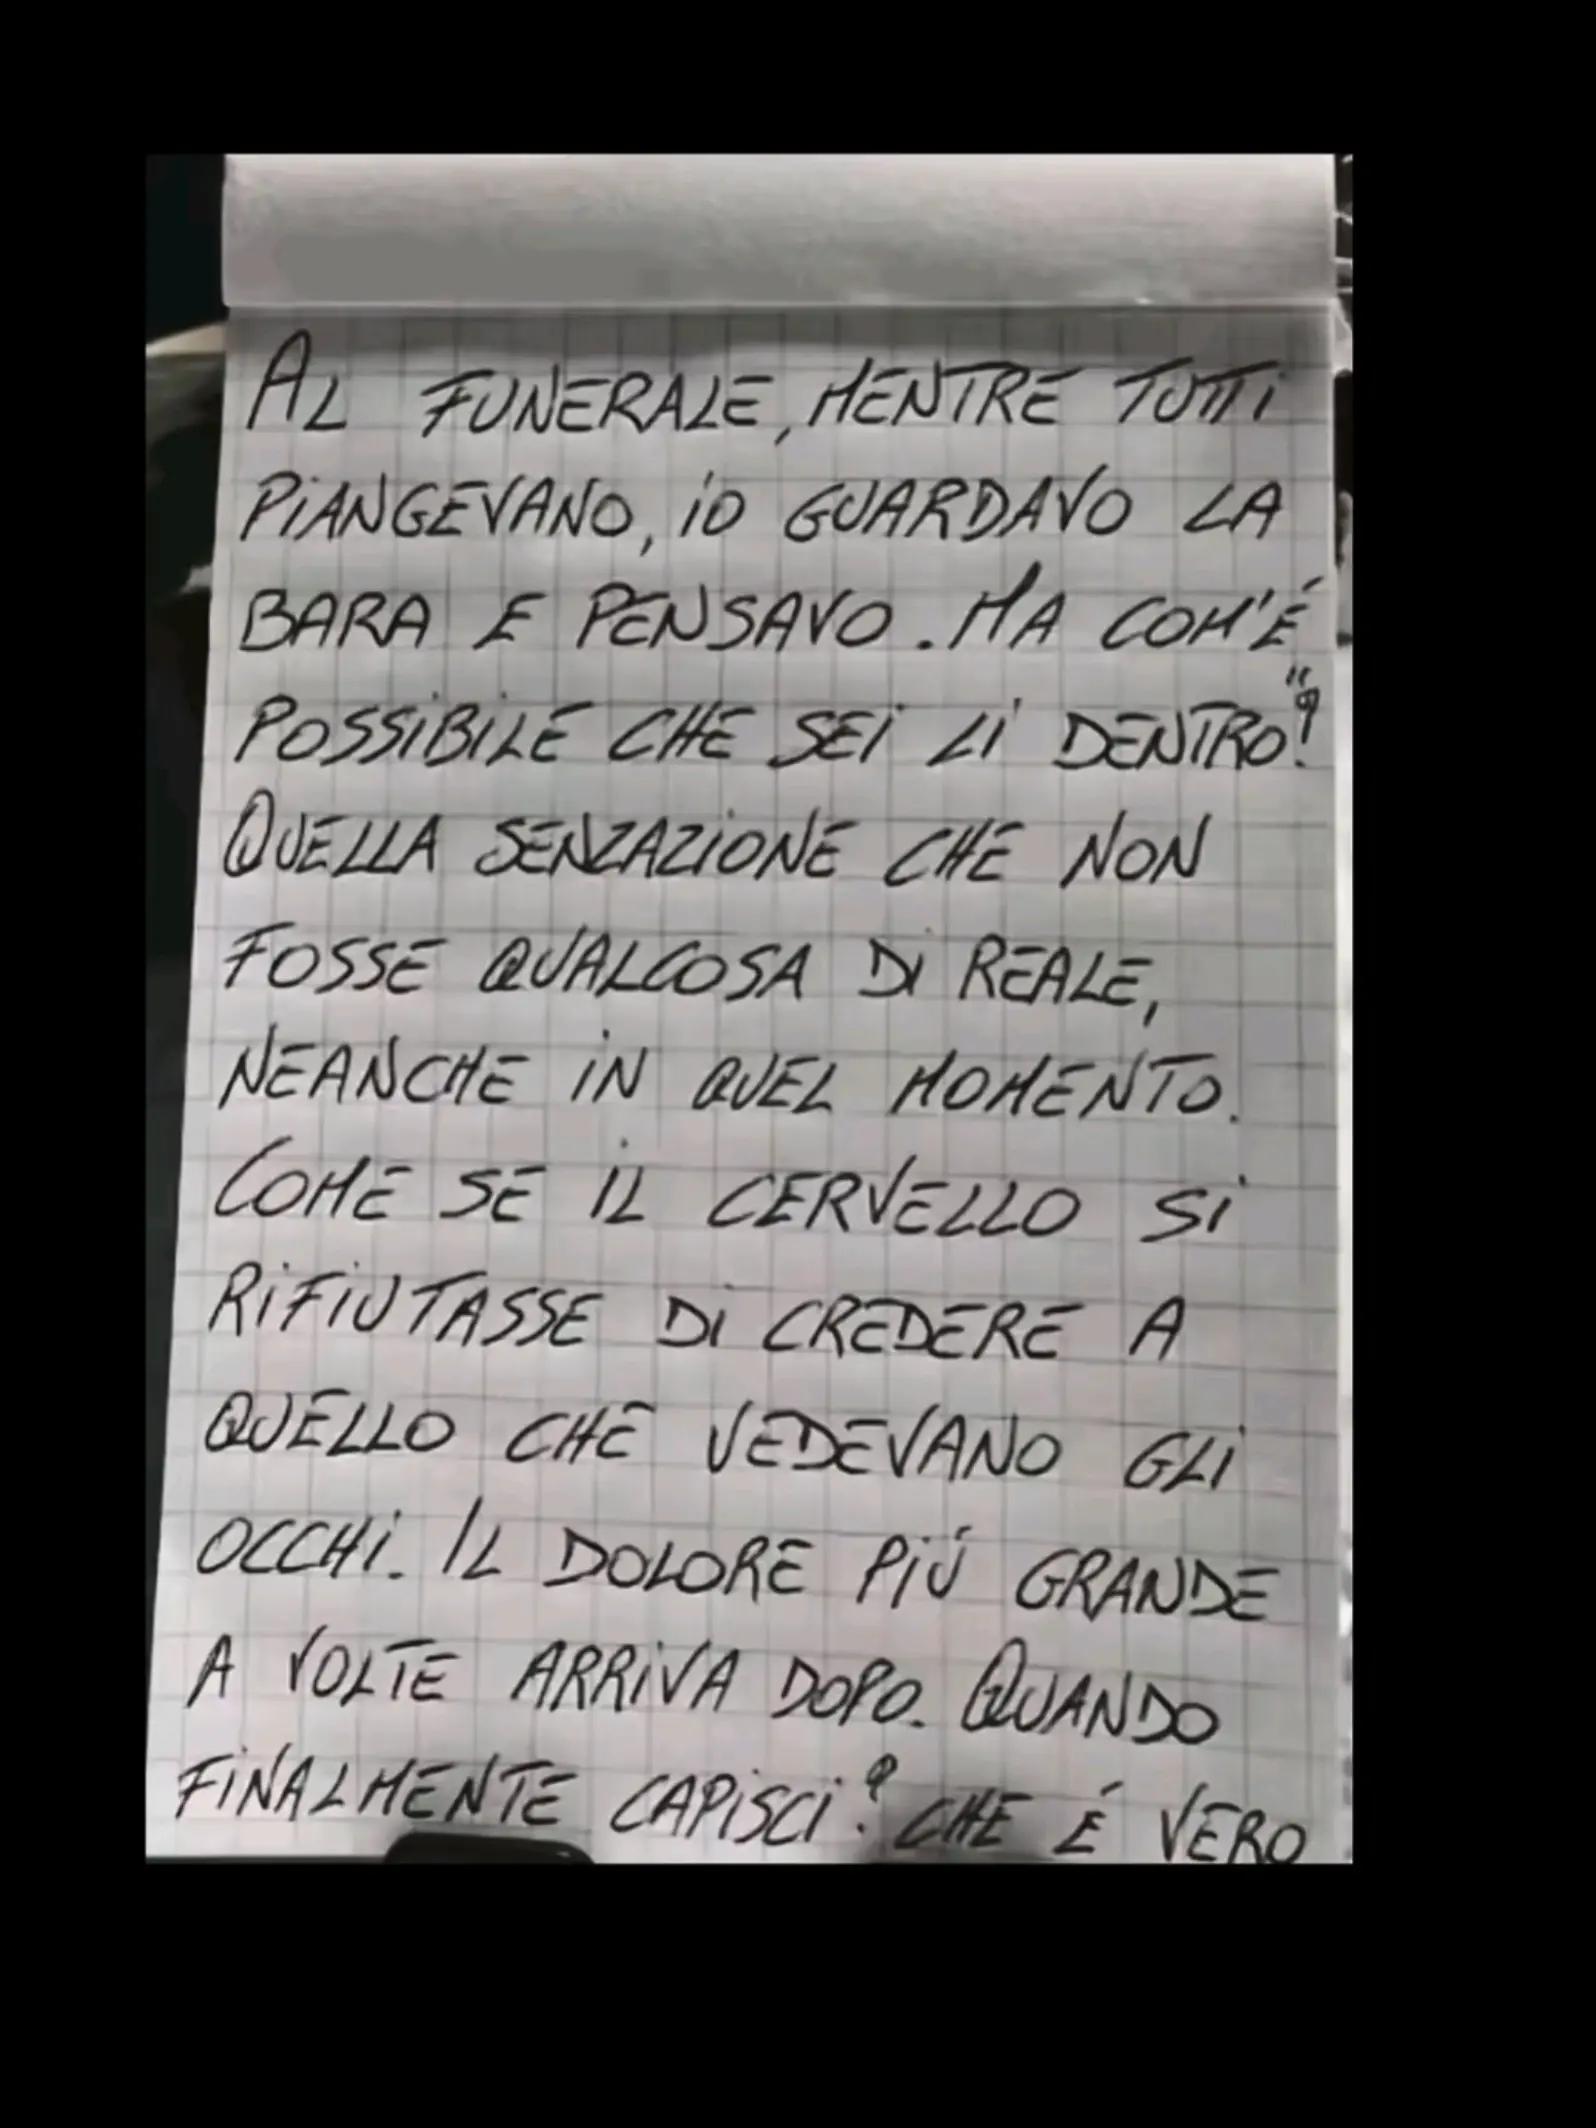 AL FUNERALE, MENTRE TUTTI
PIANGEVANO, IO GUARDAVO LA
BARA E PENSAVO. MA COM'É
POSSIBILE CHE SEI LI DENTRO?"
QUELLA SENZAZIONE CHE NON
FOSSE QUALCOSA DI REALE,
NEANCHE IN QUEL MOMENTO.
COME SE IL CERVELLO SI
RIFIUTASSE DI CREDERE A
QUELLO CHE VEDEVANO GLI
OCCHI. IL DOLORE PIÚ GRANDE
A VOLTE ARRIVA DOPO. QUANDO
FINALMENTE CAPISCI? CHE É VERO